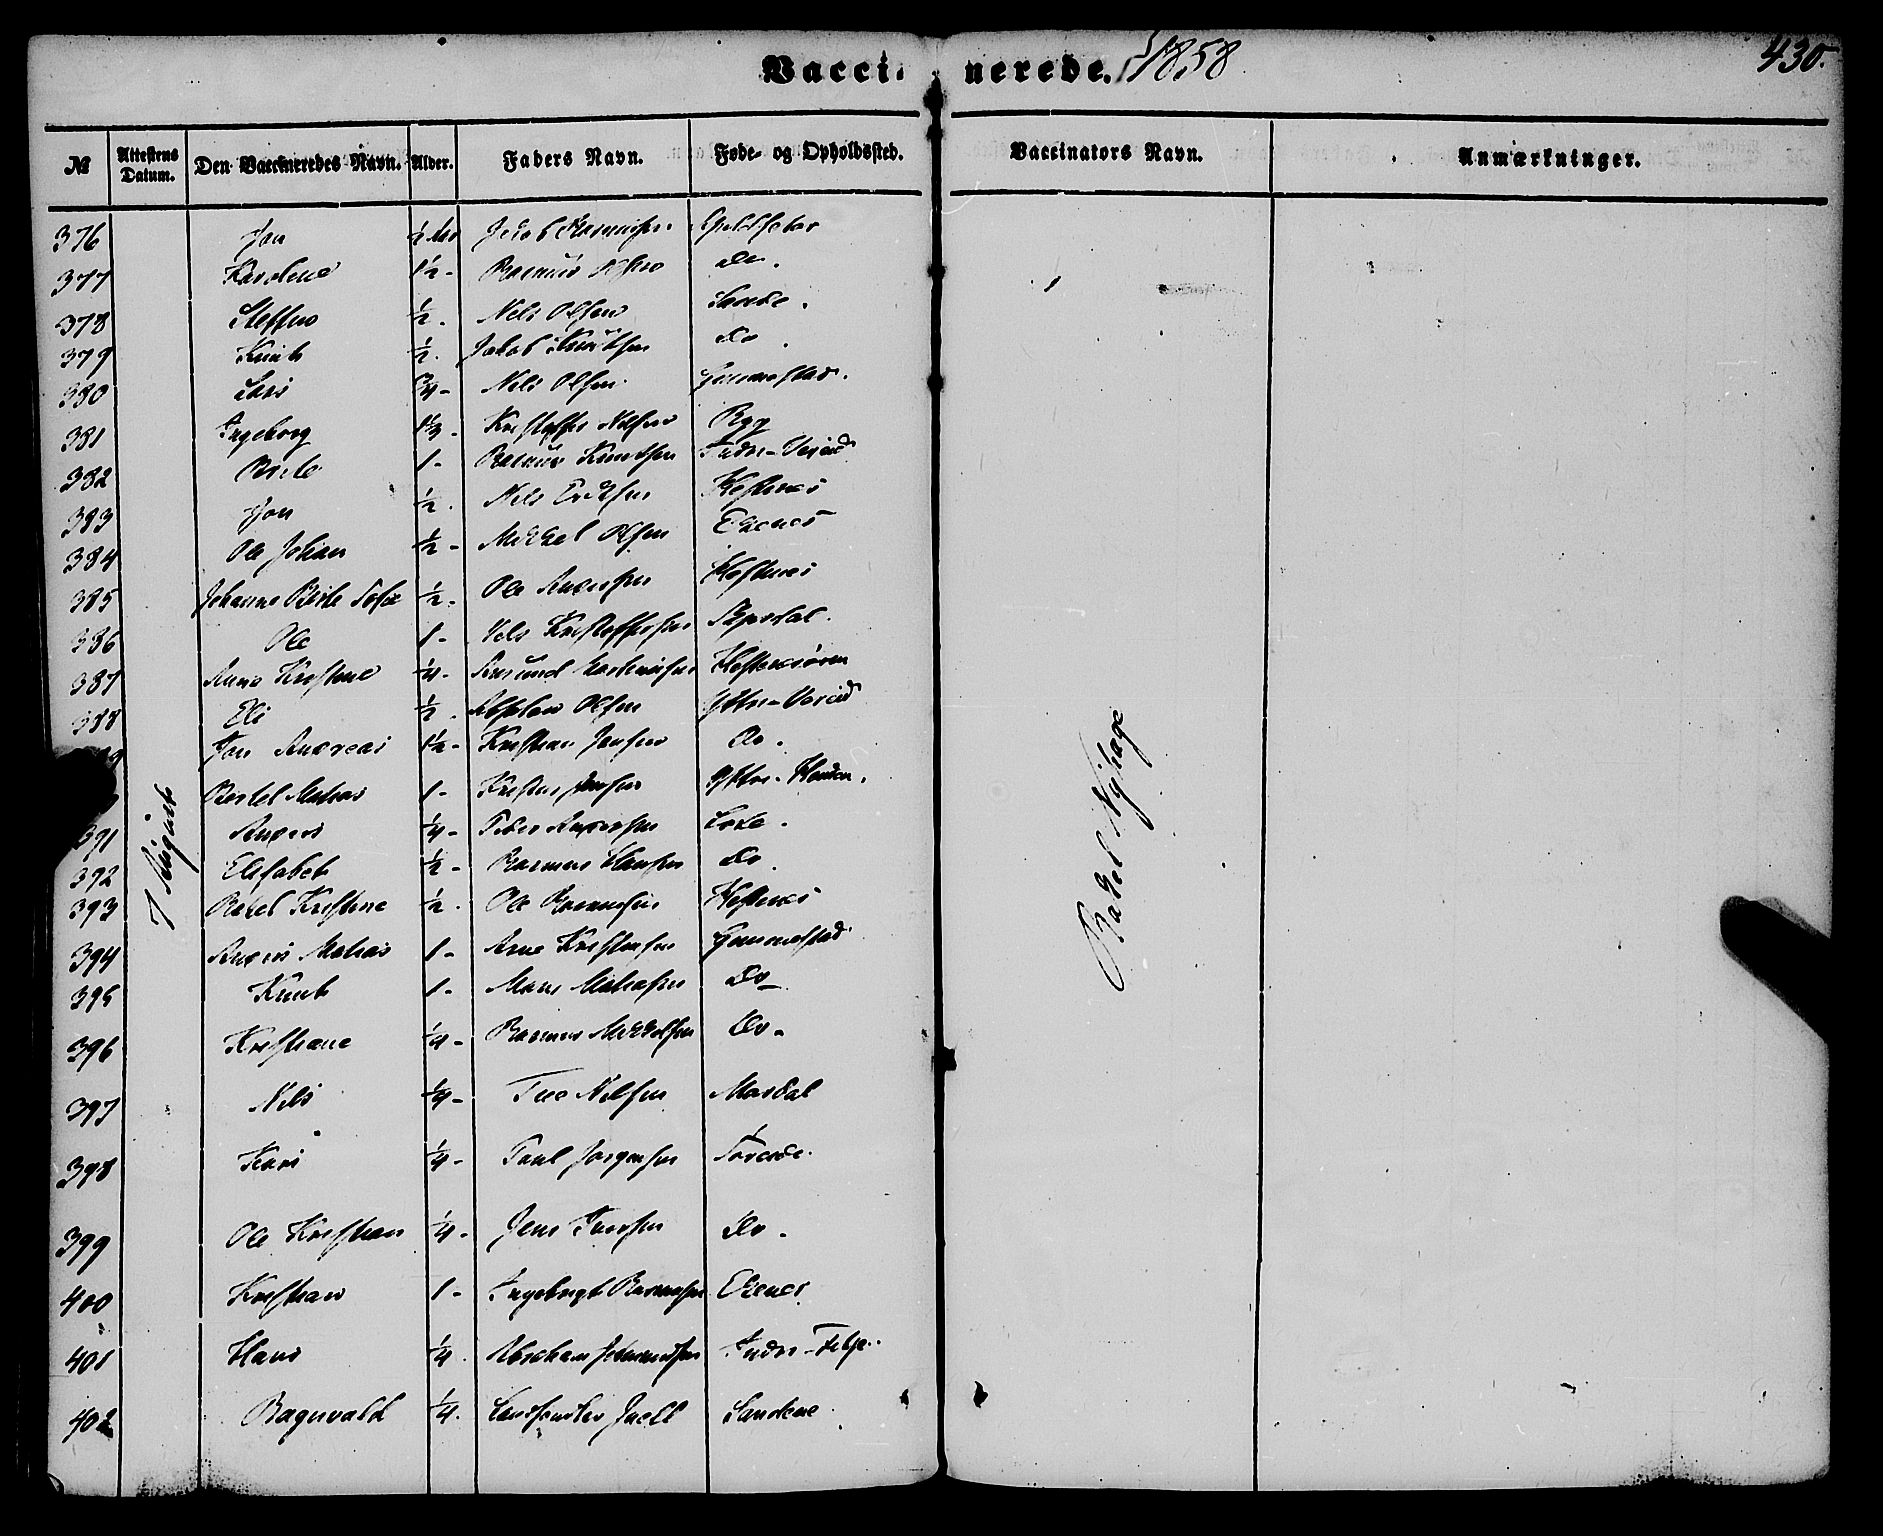 Vaccinerede. 1858
430.
№ Attestens Datum. Den Vaccineredes Navn. Alder. Faders Navn. Føde- og Opholdssted. Vaccinators Navn. Anmærkninger.
376 Jon ½ Aar Jakob Rasmussen
377 Karolene 1½ - Rasmus Do.
378 Steffen ½. Nels Olsen Sande.
379 Knut ½. Jakob Knutsen Do.
380 Lars ¾ - Nels Olsen Gemmestad.
381 Ingeborg 1⅓. Kristoffer Nilsen Ryg
382 Birte 1 - Rasmus Knutsen Indre-Vereid
383 Jon ½. Nels Eriksen Hestenes
384 Ole Johan ½ - Mikkel Olsen Ekenes
385 Johanne Birte Sofie ½ - Ole Andersen Hestenes
386 Ole 1 - Nels Kristoffersen
387 Anne Kristine ¼ - Amund Hestenesøren
388 Eli ½. Absalon Olsen Ytre-Vereid
Jon Andreas 1½ - Kristian Jensen Do.
Bertel Matias 1 - Kristen Jensen Ytre-
391 Anders ¼ - Peder Andersen Lote.
392 Elisabet ½ - Rasmus Hansen Do
393 Rakel Kristine ½. Ole Rasmussen Hestenes
394 Anders Matias 1 - Arne Kristensen Gemmestad
395 Knut 1 - Mons Matiasen Do
396 Kristiane ¼ - Rasmus Mikkelsen Do -
397 Nils ¼ - Tue Nilsen Mardal
398 Kari ¼ - Paul Jørgensen
399 Ole Kristian ¼ - Jens Iversen Do -
400 Kristian 1 - Ingebrigt Rasmussen Ekenes
401 Hans ¼. Abraham Indre-
402 Ragnvald ¼. Juell Sandene
7 August
Rakel Nyhage